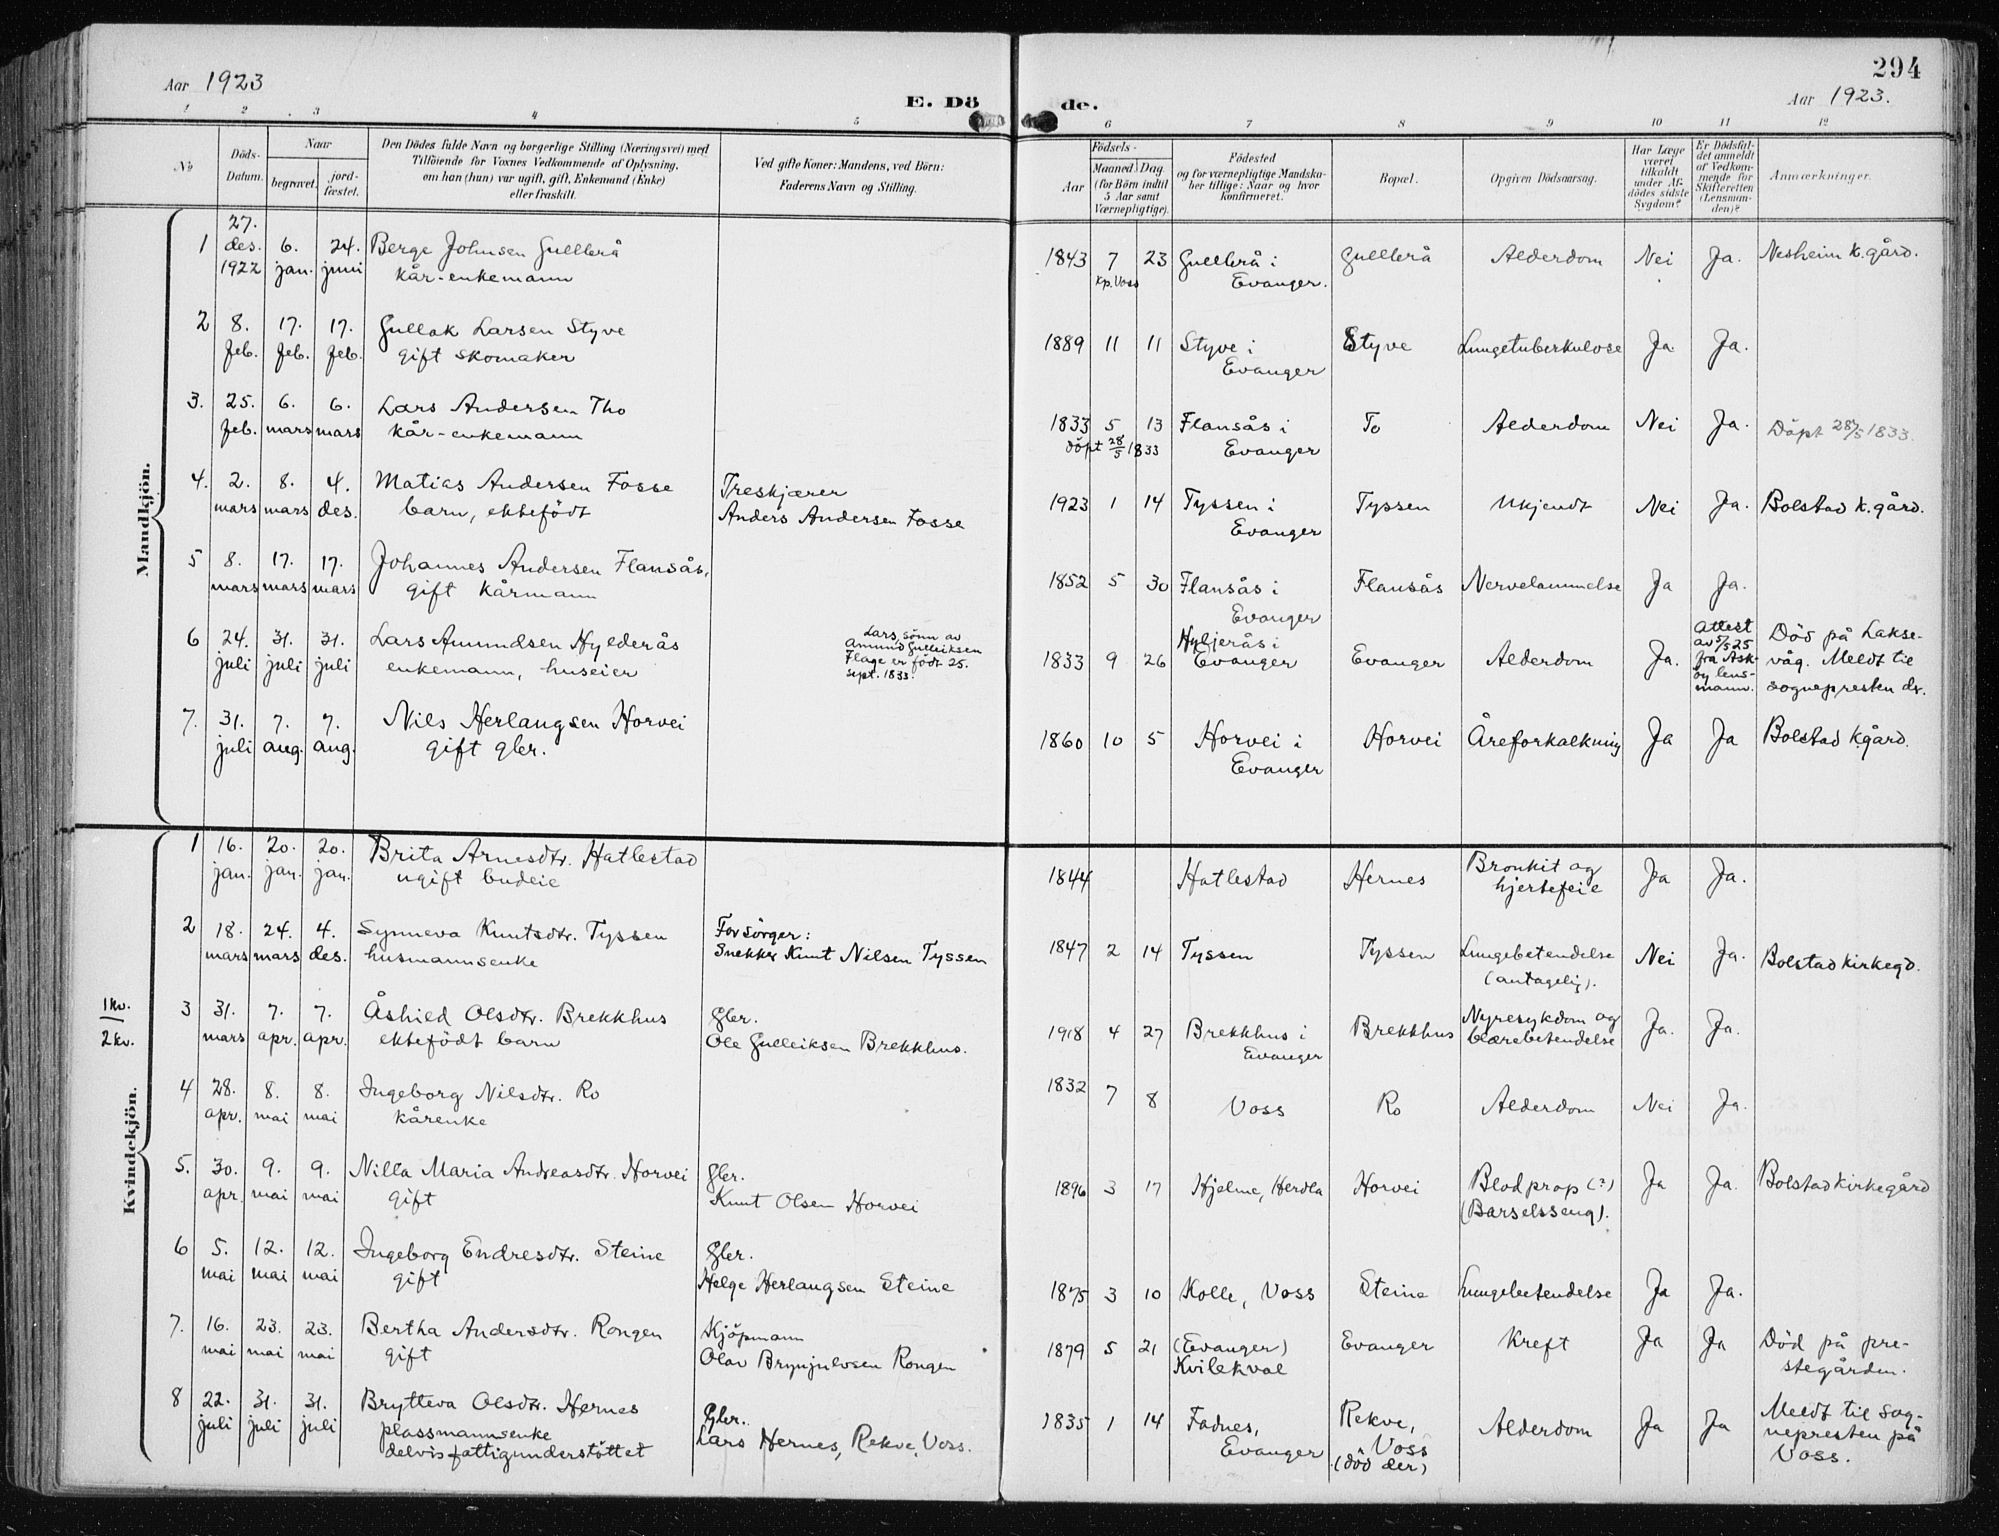 294
Aar 1923
E. Dö
de.
Aar 1923.
1 2 3 4 5 6 7 8 9 10 11 12
No
Döds-
Datum.
Naar
begravet.
jord-
fæstet.
Den Dödes fulde Navn og borgerlige Stilling (Næringsvei) med
Tilföiende for Voxnes Vedkommende af Oplysning,
om han (hun) var ugift, gift, Enkemand (Enke)
eller fraskilt.
Ved gifte Koner: Mandens, ved Börn:
Faderens Navn og Stilling.
Födsels-
Aar
Maaned Dag
(for Börn indtil
5 Aar samt
Værnepligtige).
Födested
og for værnepligtige Mandska-
ber tillige: Naar og hvor
konfirmeret.
Bopæl.
Opgiven Dödsaarsag.
Har Læge
været
tilkaldt
under Af-
dödes sidste
Sygdom?
Er Dödsfal-
det anmeldt
af Vedkom-
mende for
Skifteretten
(Lensman-
den)?
Anmærkninger.
Mandkjön.
1 27. des. 1922 6. jan. 24. juni Berge Johnsen Gullbrå
kår-enkemann
1843 7 23 Gullbrå i Gullbrå Alderdom Nei Ja. Nesheim k.gård.
kp. Voss Evanger.
2 8. feb. 17. feb. 17. feb. Gullak Larsen Styve
gift skomaker
1889 11 11 Styve i Styve Lungetuberkulose Ja Ja.
Evanger
3. 25. feb. 6. mars 6. mars Lars Andersen Tho
kår-enkemann
1833 5 13 Flansås i To Alderdom Nei Ja. Döpt 28/5 1833.
döpt 28/5 1833 Evanger
4. 2. mars 8. mars 4. des. Matias Andersen Fosse Treskjærer
barn, ektefödt Anders Andersen Fosse
1923 1 14 Tyssen i Tyssen Ukjendt Nei Ja. Bolstad k.gård.
Evanger
5 8. mars 17. mars 17. mars Johannes Andersen Flansås,
gift kårmann
1852 5 30 Flansås i Flansås Nervelammelse Ja Ja.
Evanger
6 24. juli 31. juli 31. juli Lars Amundsen Hylderås
enkemann, huseier
Lars, sönn av
Amund Gulleiksen
Flage er födt 25.
sept. 1833.
1833 9 26 Hyljerås i
Evanger Evanger Alderdom Ja.
Attest
av 5/5 25
fra Ask-
öy lens-
mann.
Död på Lakse-
våg. Meldt til
sognepresten der.
7. 31. juli 7. aug. 7. aug. Nils Herlaugsen Horvei
gift gbr.
1860 10 5 Horvei i Horvei Åreforkalkning Ja Ja Bolstad kgård.
Evanger
Kvindekjön.
1 kv.
2 kv.
1 16. jan. 20. jan. 20. jan. Brita Arnesdtr. Hatlestad
ugift budeie
1844 Hatlestad Hernes Bronkit og Ja Ja.
hjertefeil
2 18. mars 24. mars 4. des. Synneva Knutsdtr. Tyssen Forsörger:
husmannsenke Snekker Knut Nilsen Tyssen
1847 2 14 Tyssen Tyssen Lungebetendelse Nei Ja. Bolstad kirkegd.
(antagelig).
3 31. mars 7. apr. 7. apr. Åshild Olsdtr. Brekkhus gbr.
ektefödt barn Ole Gulleiksen Brekkhus.
1918 4 27 Brekkhus i Brekkhus Nyresykdom og Ja. Ja.
Evanger blærebetendelse
4 28. apr. 8. mai 8. mai Ingeborg Nilsdtr. Ro
kårenke
1832 7 8 Voss Ro Alderdom Nei Ja.
5. 30. apr. 9. mai 9. mai Nilla Maria Andreasdtr. Horvei gbr.
gift Knut Olsen Horvei
1896 3 17 Hjelme, Herdla Horvei Blodprop (?) Ja Ja. Bolstad kirkegård
(Barselsseng).
6 5. mai 12. mai 12. mai Ingeborg Endresdtr. Steine gbr.
gift Helge Herlaugsen Steine
1875 3 10 Kolle, Voss Steine Lungebetendelse Ja Ja.
7. 16. mai 23. mai 23. mai Bertha Andersdtr. Rongen Kjöpmann
gift Olav Brynjulvsen Rongen
1879 5 21 (Evanger) Evanger Kreft Ja Ja Död på pre-
Kvilekval stegården.
8 22. juli 31. juli 31. juli Brytteva Olsdtr. Hernes gbr.
plassmannsenke Lars Hernes, Rekve, Voss.
delvis fattigunderstöttet
1835 1 14 Fadnes, Rekve, Alderdom Ja Ja Meldt til sog-
Evanger Voss nepresten på
(död der) Voss.